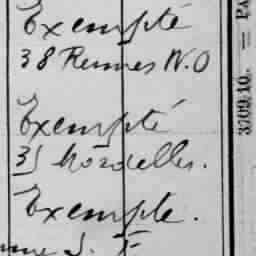 Exempté
38 Rennes N.O
Exempté
31 Mordelles.
Exempté.
S. F
3709.10. — PA